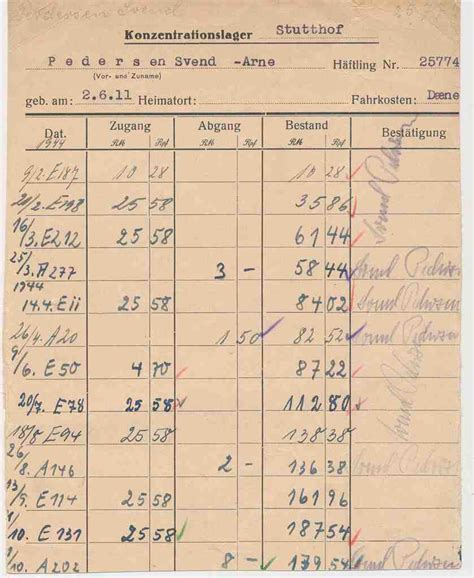 Pedersen Svend 25.77
Konzentrationslager Stutthof
Pedersen Svend -Arne Häftling Nr. 25774
(Vor- und Zuname)
geb. am: 2.6.11 Heimatort: Fahrkosten: Dæne
Dat. Zugang Abgang Bestand Bestätigung
1944 RM Rpf RM Rpf RM Rpf
9/2. E187 10 28 10 28
20/2. E198 25 58 35 86 Svend Pedersen
16/3. E212 25 58 61 44
25/3. A277 3 - 58 44 Svend Pedersen
1944
14.4. E11 25 58 84 02 Svend Pedersen
26/4. A20 1 50 82 52 Svend Pedersen
9/6. E50 4 70 87 22
20/7. E78 25 58 112 80 Svend Pedersen
18/8 E94 25 58 138 38
26/8. A146 2 - 136 38 Svend Pedersen
13/9. E114 25 58 161 96
1/10. E131 25 58 187 54
9/10. A202 8 - 179 54 Svend Pedersen